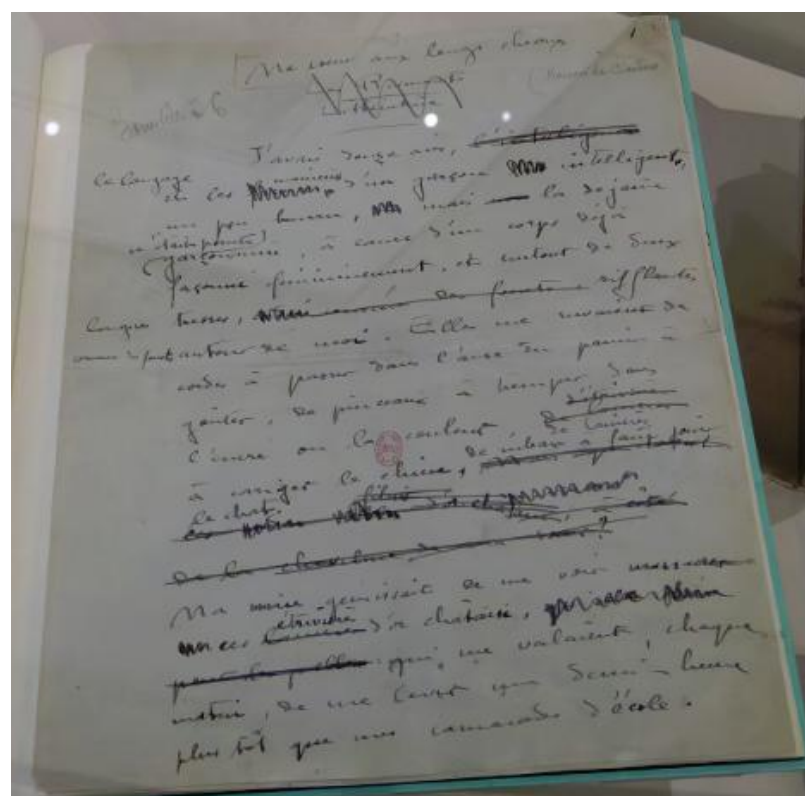 1
Ma sœur aux longs cheveux
J'avais douze ans,
le langage
et les manières d'un garçon intelligent,
un peu bourru, mais la dégaine
n'était point
garçonnière, à cause d'un corps déjà
façonné fémininement, et surtout de deux
longues tresses, sifflantes
comme des fouets autour de moi. Elles me servaient de
cordes à passer dans l'anse du panier à
goûter, de pinceaux à tremper dans
l'encre ou la couleur
de lanières
à corriger le chien, de ruban à faire jouer
le chat.
de la chevelure
Ma mère gémissait de me voir massacrer
étrivières
ces d'or châtain,
qui me valaient, chaque
matin, de me lever une demi-heure
plus tôt que mes camarades d'école.